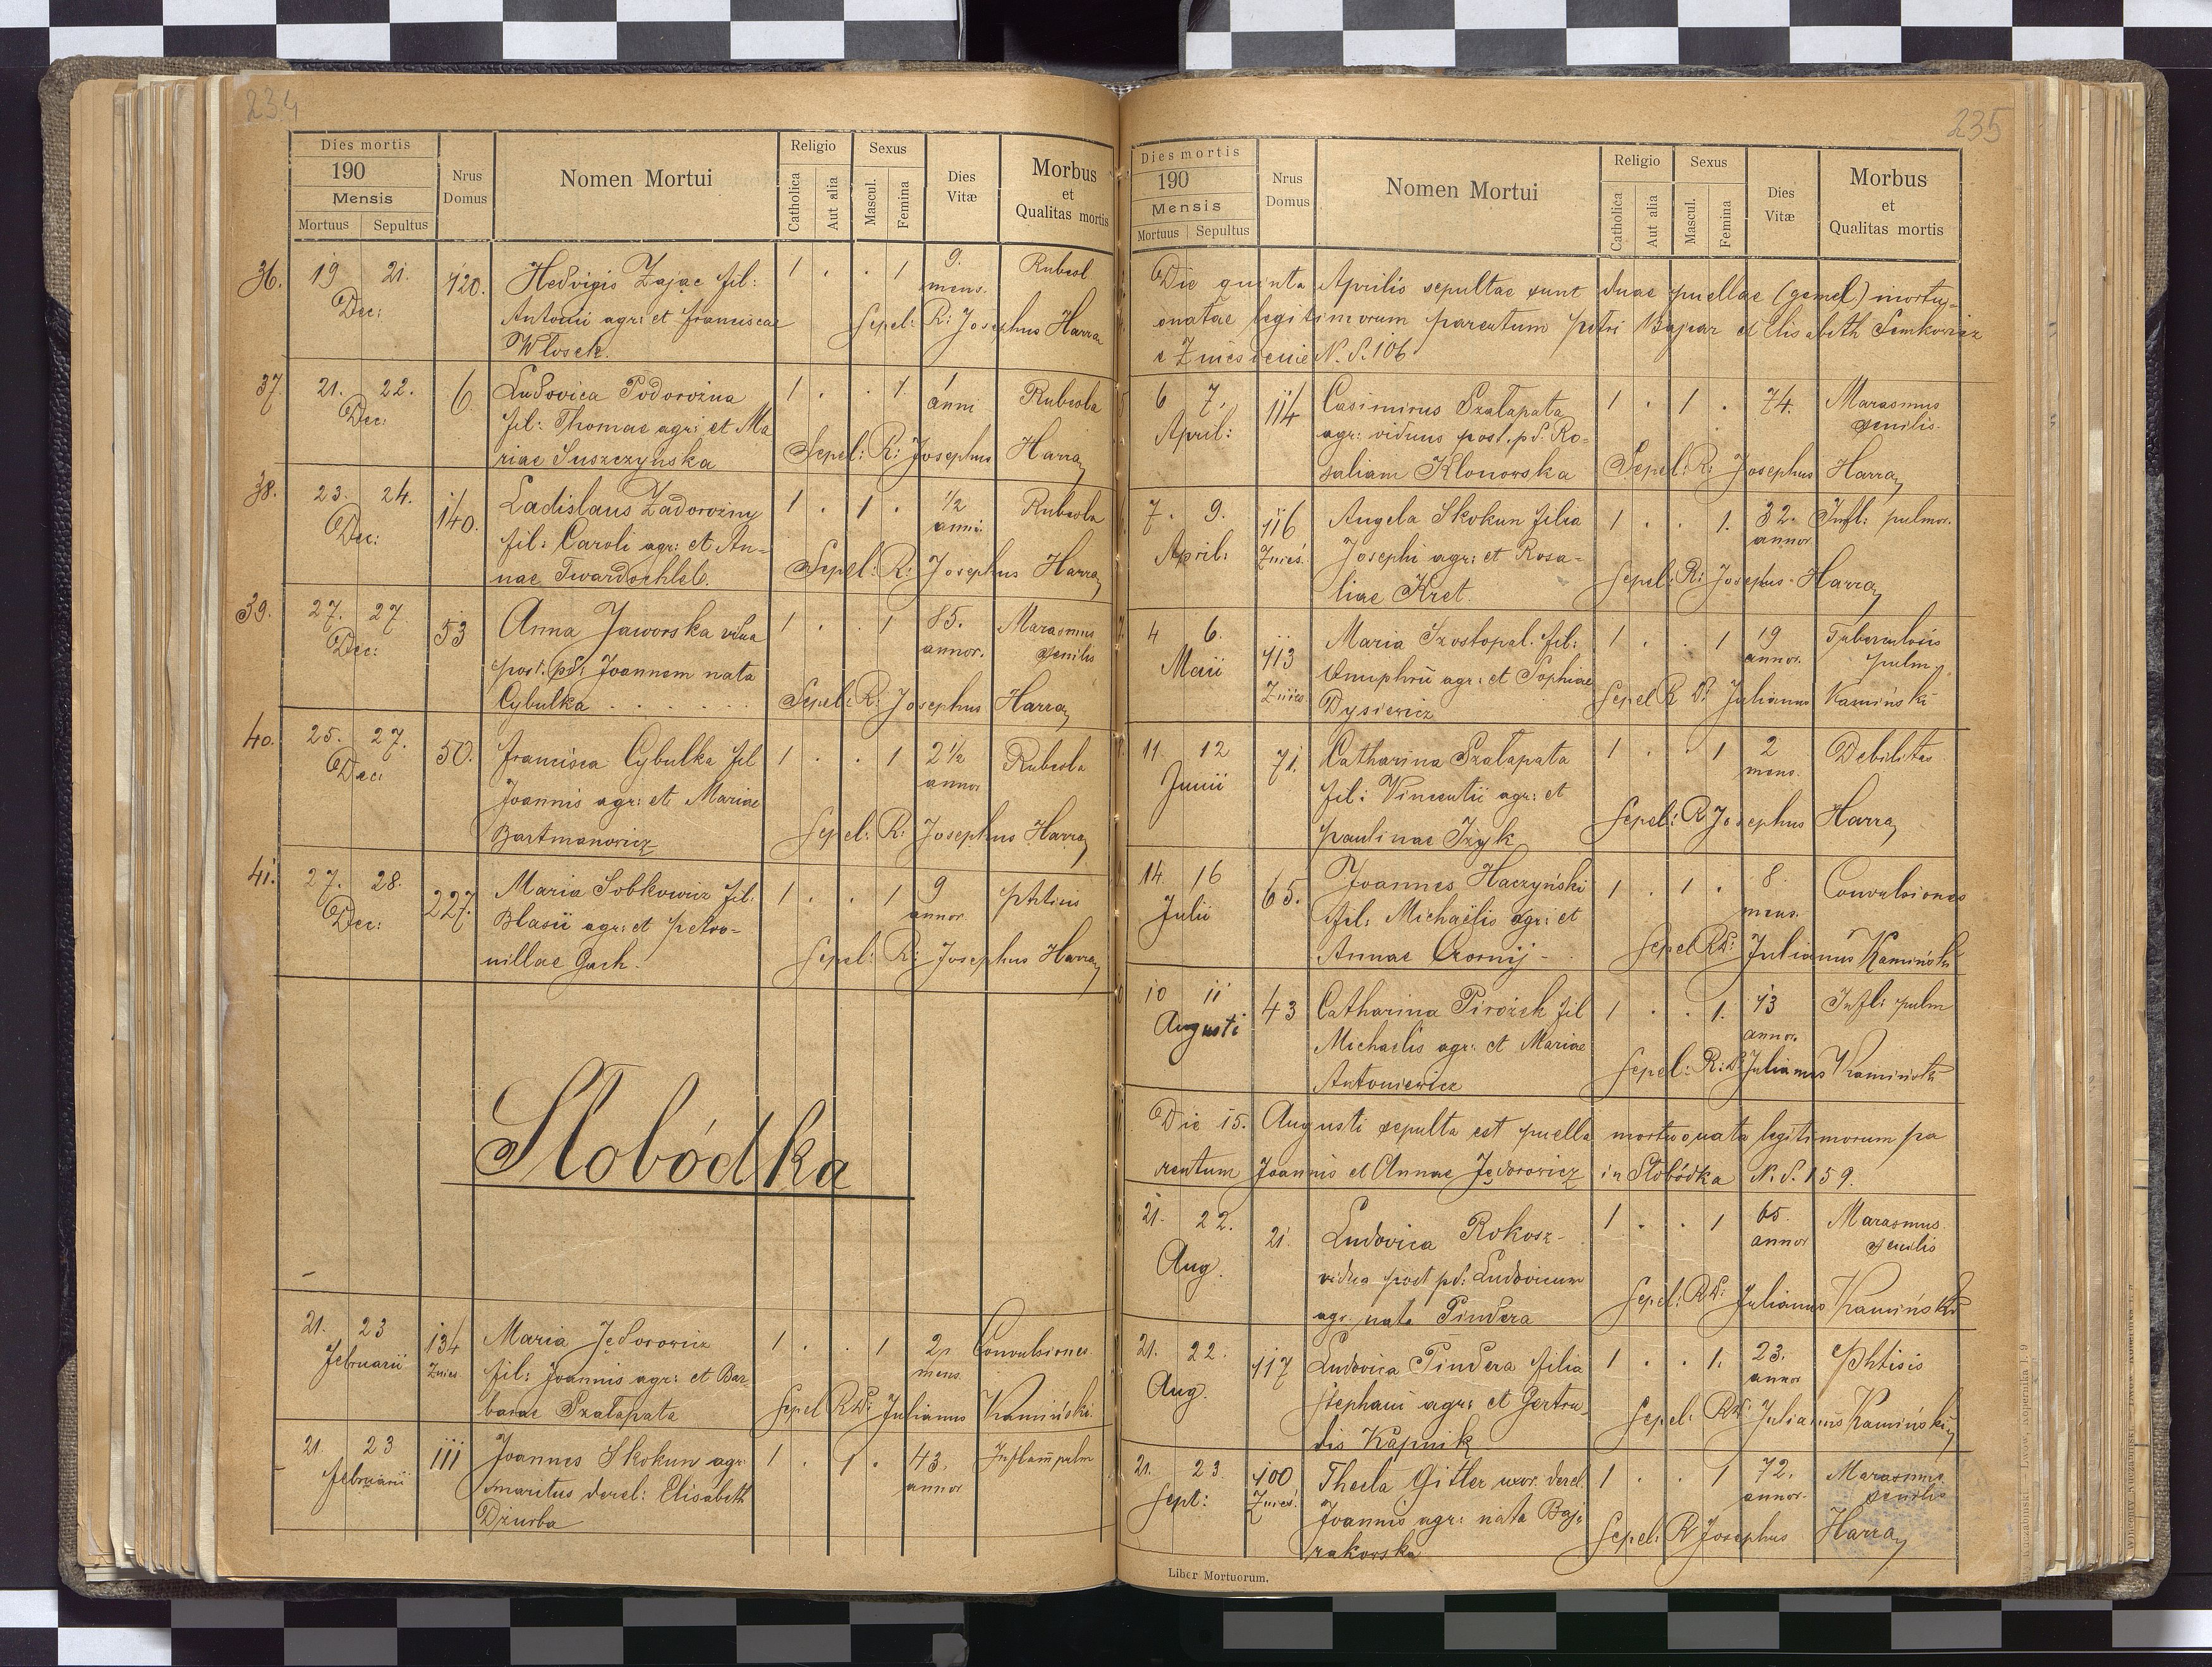 234
Dies mortis
190
Mensis
Mortuus Sepultus
Nrus Domus
Nomen Mortui
Religio
Catholica
Aut alia
Sexus
Mascul.
Femina
Dies Vitæ
Morbus
et
Qualitas mortis
36. 19 21. 120. Hedvigis Zając fil: 1 . . 1 9. Rubeol
Dec: Antonii agr: et Franciscae mens. Sepel: R: Josephus Harra
Włosek.
37. 21. 22. 6. Ludovica Podorożna 1 . . 1 1 Rubeola
Dec: fil: Thomae agr: et Ma anni
riae Suszczyńska Sepel: R: Josephus Harra
38. 23. 24. 140. Ladislaus Zadorożny 1 . 1 . 1/2 Rubeola
Dec: fil: Caroli agr: et An= anni
nae Twardochleb. Sepel: R: Josephus Harra
39. 27. 27. 53 Anna Jaworska vdua 1 . . 1 85. Marasmus
Dec: post. pd: Joannem nata annor. senilis
Cybulka Sepel: R: Josephus Harra
40. 25. 27. 50. Francisca Cybulka fil 1 . . 1 2 1/2 Rubeola
Dec: Joannis agr: et Mariae annor
Bartmanowicz Sepel: R: Josephus Harra
41. 27. 28. 227. Maria Sobkowicz fil: 1 . . 1 9 phtisis
Dec: Blasii agr: et Petro= annor
nillae Gach. Sepel: R: Josephus Harra
Słobódka
21. 23 134 Maria Jędorowicz 1 . . 1 2 Convulsiones
Februarii Znies. fil: Joannis agr: et Bar= mens.
barae Szałapata Sepel R D: Julianus Kamiński.
21. 23 111 Joannes Skokun agr. 1 . 1 . 43. Inflam pulm
Februarii maritus derel: Elisabeth annor
Dziurba
235
Dies mortis
190
Mensis
Mortuus Sepultus
Nrus Domus
Nomen Mortui
Religio
Catholica
Aut alia
Sexus
Mascul.
Femina
Dies Vitæ
Morbus
et
Qualitas mortis
Die quinta Aprilis sepultae sunt duae puellae (gemel) mortu=
onatae legitimorum parentum Petri Bajcar et Elisabeth Semkowicz
e Zniesienie N. S. 106
6 7. 114 Casimirus Szałapata 1 . 1 . 74. Marasmus
April: agr: viduus post. pd. Ro= senilis.
saliam Klonowska Sepel: R: Josephus Harra
7. 9. 116 Angela Skokun filia 1 . . 1. 32. Infl: pulmon.
April: Znieś. Josephi agr: et Rosa= annor.
liae Kret. Sepel: R: Josephus Harra
4 6. 113 Maria Szostopal. fil: 1 . . 1 19 Tuberculosis
Maii Znies. Onuphrii agr: et Sophiae annor. pulm.
Dysiewicz Sepel R D: Julianus Kamiński
11. 12 71. Catharina Szałapata 1 . . 1 2 Debilitas
Junii fil: Vincentii agr: et mens.
Paulinae Iżyk Sepel: R Josephus Harra
14. 16 65. Joannes Haczyński 1 . 1 . 8 Convulsiones
Julii fil: Michaëlis agr: et mens.
Annae Czornij - Sepel R D: Julianus Kamiński
10 11 43 Catharina Pirożek fil 1 . . 1. 43 Infl: pulm
Augusti Michaelis agr: et Mariae annor.
Antoniewicz Sepel: R: D: Julianus Kamiński
Die 15. Augusti sepulta est puella mortuonata legitimorum pa
rentum Joannis et Annae Jędorowicz in Słobódka N. S. 159.
21. 22. 21. Ludovica Rokosz- 1 . . 1 65. Marasmus
Aug. vidua post pd: Ludovicum annor senilis
agr. nata Pindera Sepel: R D: Julianus Kamiński
21. 22. 117 Ludovica Pindera filia 1 . . 1. 23. Phtisis
Aug. Stephani agr: et Gertru annor
dis Kapnik Sepel: R D: Julianus Kamiński
21. 23. 100 Thecla Gitler uxor. derel. 1 . . 1 72. Marasmus
Sept: Znieś. Joannis agr: nata Baj= annor. senilis
rakowska Sepel: R Josephus Harra
Liber Mortuorum.